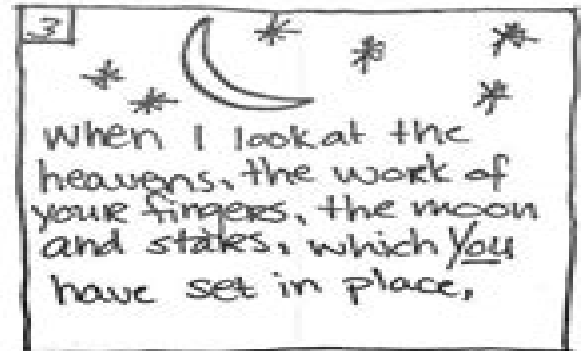 3
When I look at the
heavens, the work of
your fingers, the moon
and stars, which You
have set in place,